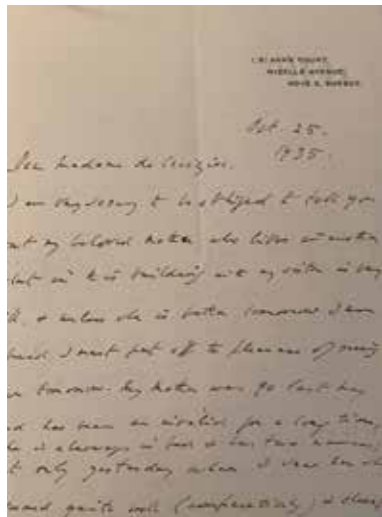 COURT,
AVENUE,
HOVE 3, SUSSEX.
Oct. 25.
1935.
Dear Madame de
I am very sorry to be obliged to tell you
my beloved mother who lives in another
flat in building with my sister is very
& unless she is better tomorrow I am
I must put off the pleasure of seeing
tomorrow. My mother was 90 last May
has been an invalid for a long time,
is always in bed & has two nurses,
only yesterday when I saw her she
quite well (comparatively) &